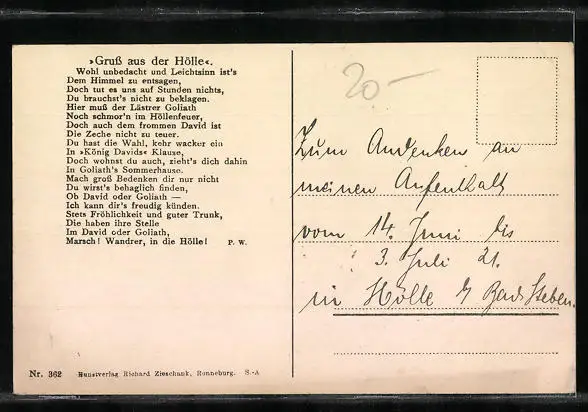 »Gruß aus der Hölle«.
Wohl unbedacht und Leichtsinn ist's
Dem Himmel zu entsagen,
Doch tut es uns auf Stunden nichts,
Du brauchst's nicht zu beklagen.
Hier muß der Lästrer Goliath
Noch schmor'n im Höllenfeuer,
Doch auch dem frommen David ist
Die Zeche nicht zu teuer.
Du hast die Wahl, kehr wacker ein
In »König Davids« Klause,
Doch wohnst du auch, zieht's dich dahin
In Goliath's Sommerhause.
Mach groß Bedenken dir nur nicht
Du wirst's behaglich finden,
Ob David oder Goliath —
Ich kann dir's freudig künden.
Stets Fröhlichkeit und guter Trunk,
Die haben ihre Stelle
Im David oder Goliath,
Marsch! Wandrer, in die Hölle! P. W.
Nr. 362 Kunstverlag Richard Zieschank, Ronneburg. S.-A
20-
Zum Andenken an
meinen Aufenthalt
vom 14. Juni bis
3. Juli 21.
in Hölle b/ Bad Steben.